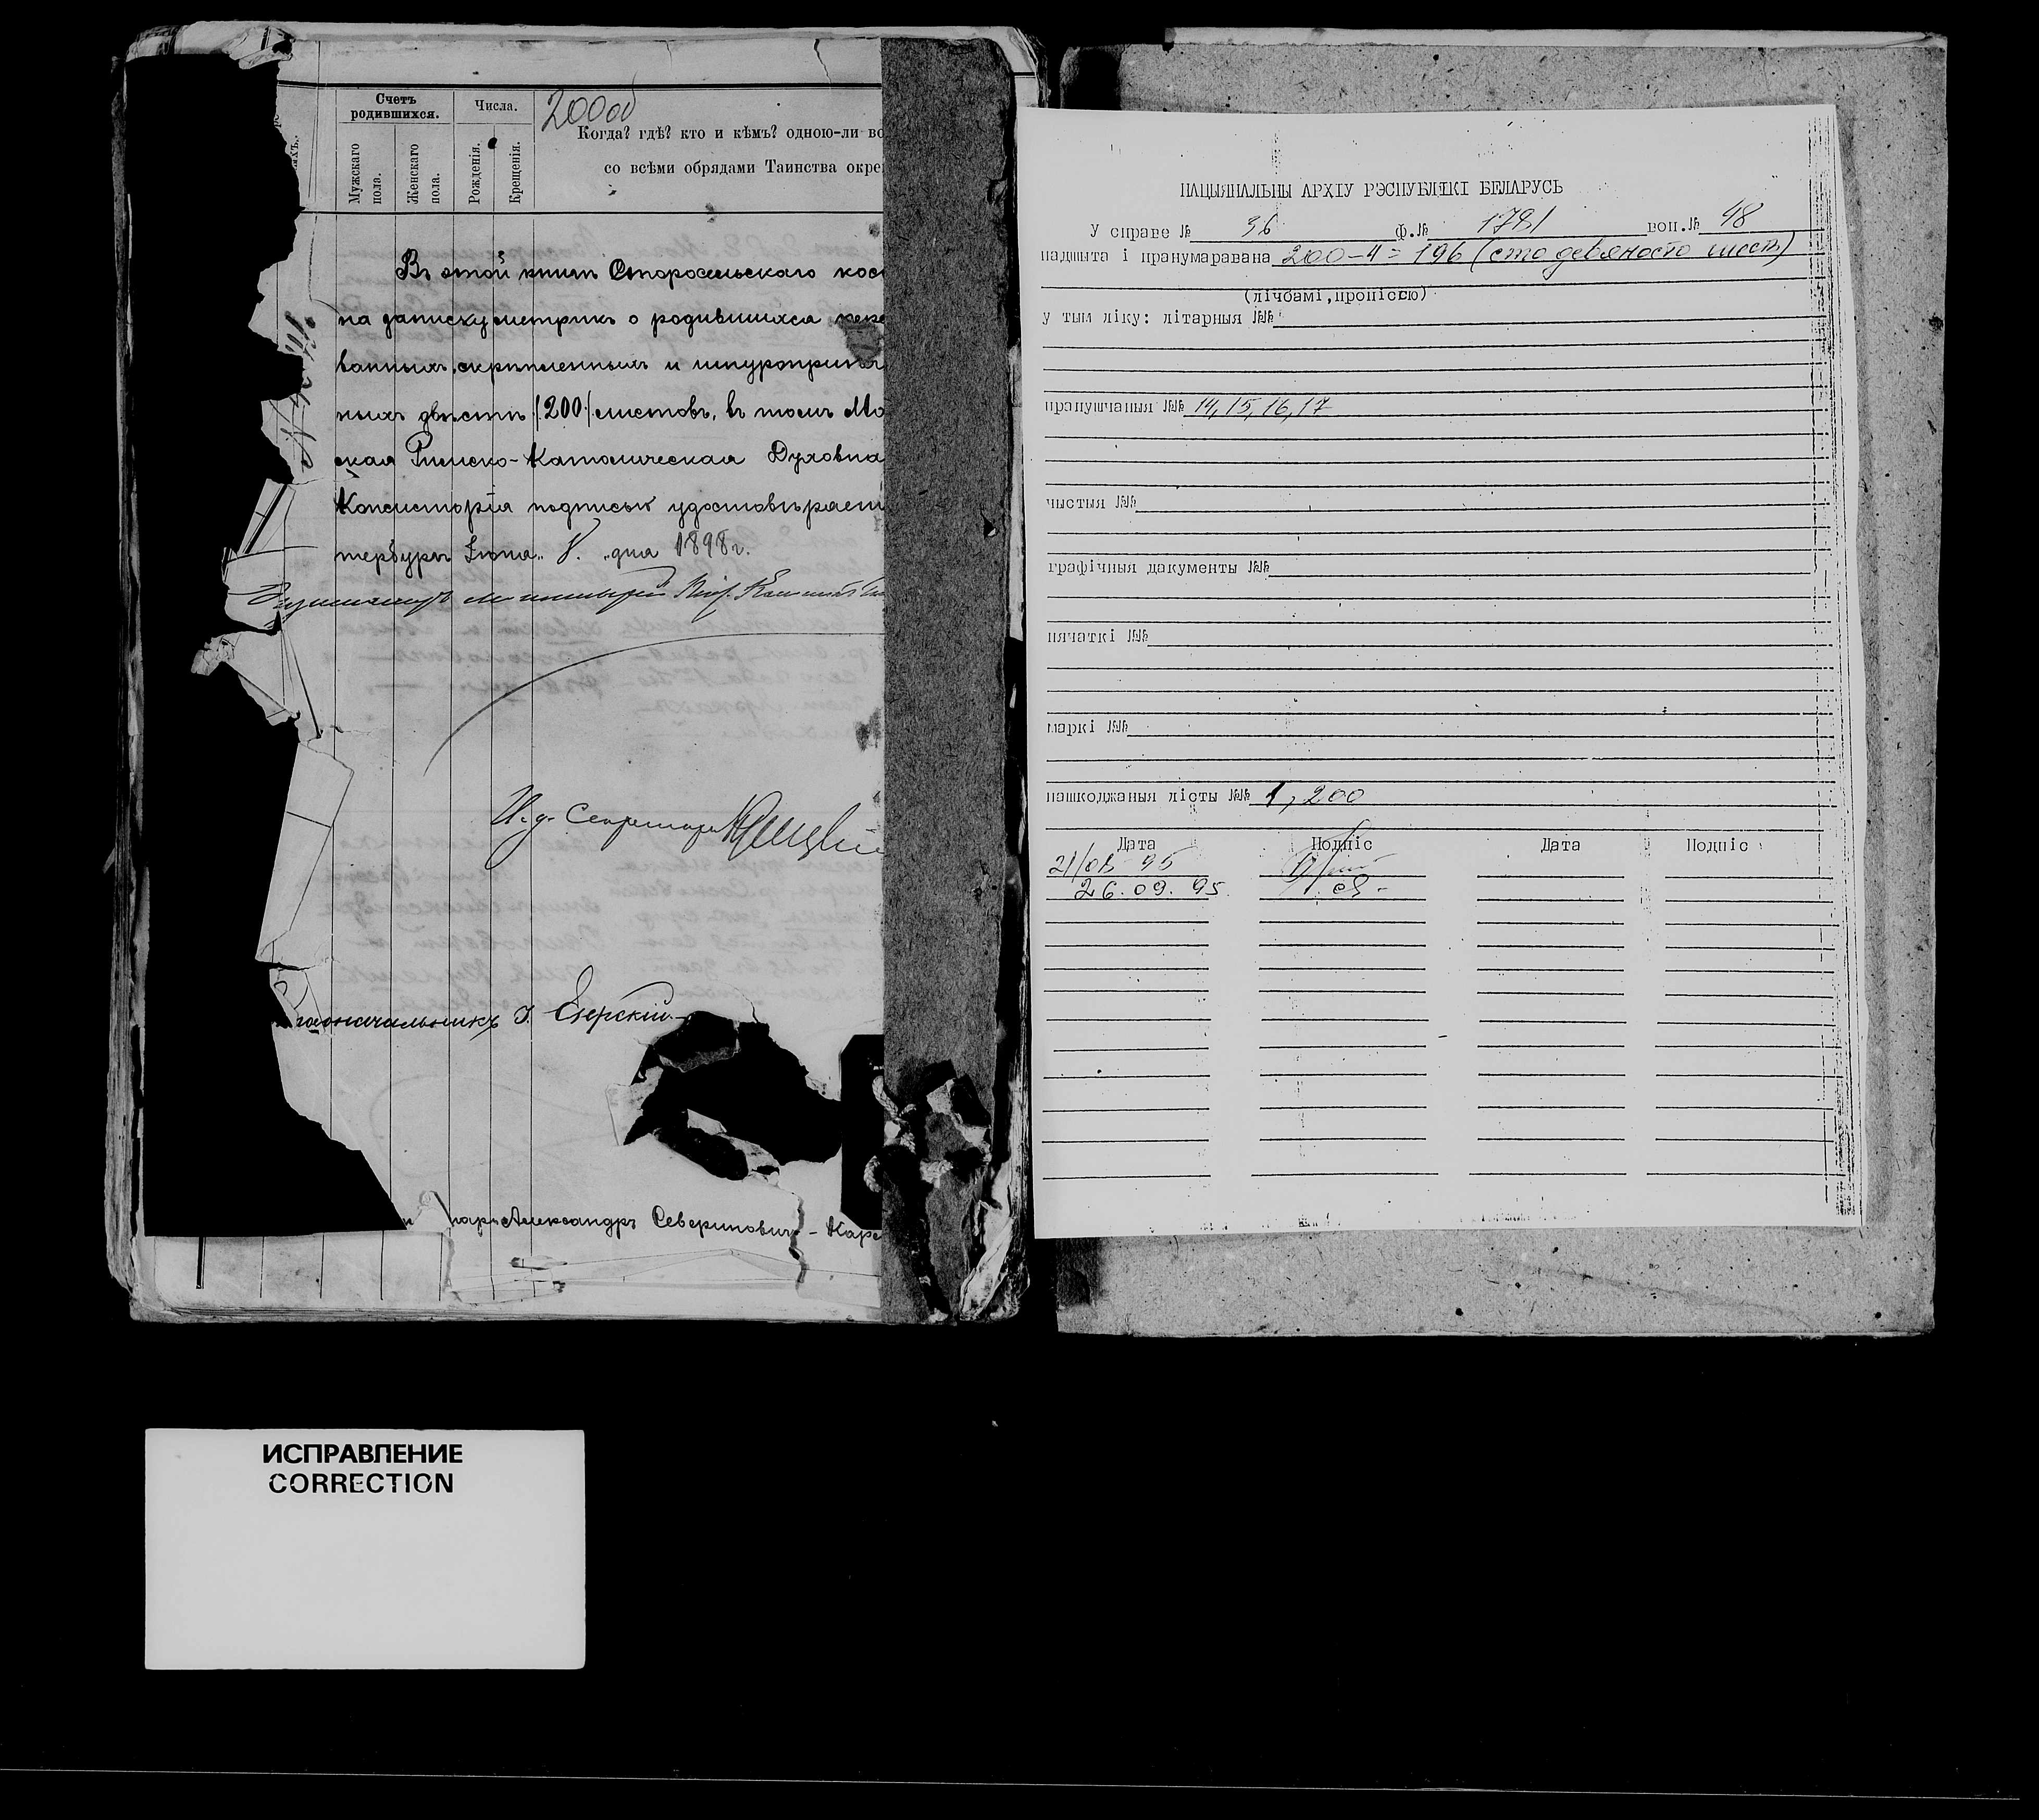 200об
Счетъ родившихся.
Числа.
Мужскаго пола.
Женскаго пола.
Рожденія.
Крещенія.
Когда? гдѣ? кто и кѣмъ? одною-ли во
со всѣми обрядами Таинства окре
Въ этой книгѣ Старосельскаго кос
на записку метрикъ о родившихся
ванныхъ, скрѣпленныхъ и шнуроприпеч
ныхъ двѣсти /200/ листовъ, въ томъ Мо
ская Римско-Католическая Духовна
Консисторія подписью удостовѣряетъ
тербургъ Іюня дня 1898 г.
И. д. Секретаря
Столоначальникъ І. Езерскій
Александръ Севериновичъ - Каре
НАЦЫЯНАЛЬНЫ АРХІУ РЭСПУБЛІКІ БЕЛАРУСЬ
У справе № 36 ф.№ 1781 воп.№ 48
падшыта і пранумаравана 200-4=196 (сто девяносто шесть)
(лічбамі, пропіссю)
у тым ліку: літарныя №№
прапушчаныя №№ 14, 15, 16, 17
чыстыя №№
графічныя дакументы №№
пячаткі №№
маркі №№
пашкоджаныя лісты №№ 1, 200
Дата Подпіс Дата Подпіс
26.09.95
ИСПРАВЛЕНИЕ
CORRECTION